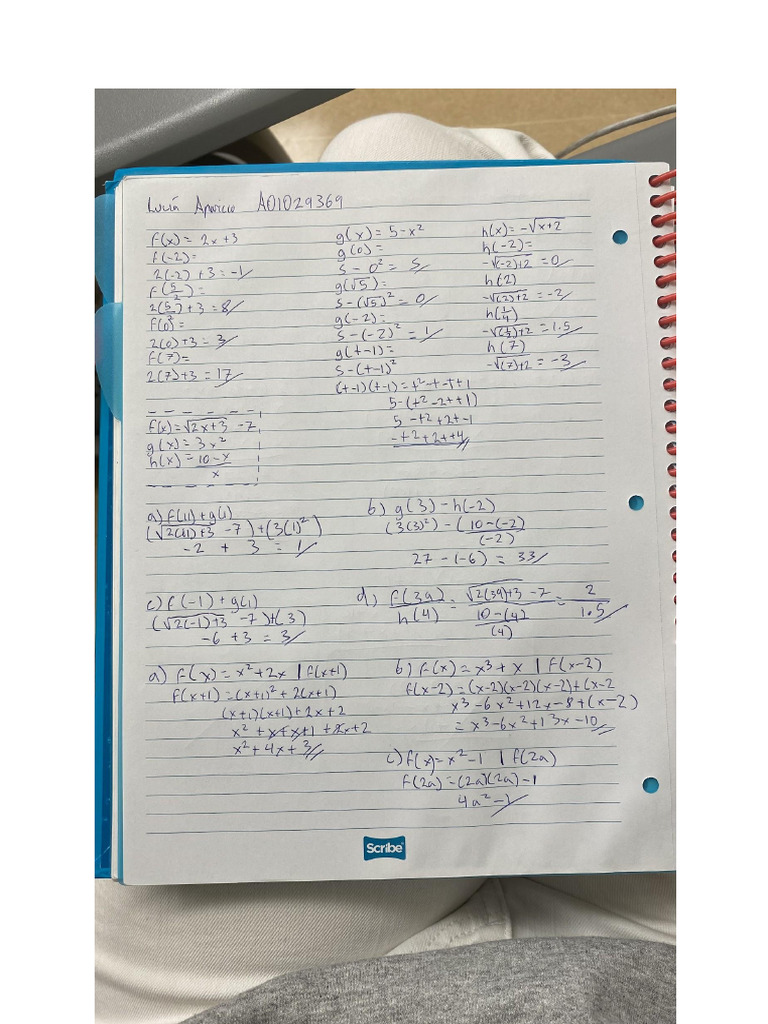 Lucía Aparicio A01029369
f(x) = 2x+3
f(-2) =
2(-2) +3 = -1
f(5/2) =
2(5/2) +3 = 8
f(0) =
2(0)+3 = 3
f(7) =
2(7)+3 = 17
g(x) = 5-x²
g(0) =
5 - 0² = 5
g(√5) =
5-(√5)² = 0
g(-2) =
5-(-2)² = 1
g(t-1) =
5-(t-1)²
(t-1)(t-1) = t²-t-t+1
5-(t²-2t+1)
5-t²+2t-1
-t²+2t+4
h(x) = -√x+2
h(-2) =
-√(-2)+2 = 0
h(2)
-√(2)+2 = -2
h(1/4)
-√(1/4)+2 = 1.5
h(7)
-√(7)+2 = -3
f(x) = √2x+3 -7
g(x) = 3x²
h(x) = 10-x/x
a) f(11)+g(1)
(√2(11)+3 -7)+(3(1)²)
-2 + 3 = 1
b) g(3) - h(-2)
(3(3)²) - (10-(-2)/(-2))
27 -(-6) = 33
c) f(-1) + g(1)
(√2(-1)+3 -7)+(3)
-6 + 3 = 3
d) f(39)/h(4) = √2(39)+3 -7 / 10-(4)/(4) = 2/1.5
a) f(x) = x²+2x | f(x+1)
f(x+1) = (x+1)²+2(x+1)
(x+1)(x+1)+2x+2
x²+x+x+1+2x+2
x²+4x+3
b) f(x) = x³+x | f(x-2)
f(x-2) = (x-2)(x-2)(x-2)+(x-2
x³-6x²+12x-8+(x-2)
= x³-6x²+13x-10
c) f(x) = x²-1 | f(2a)
f(2a) = (2a)(2a)-1
4a²-1
Scribe